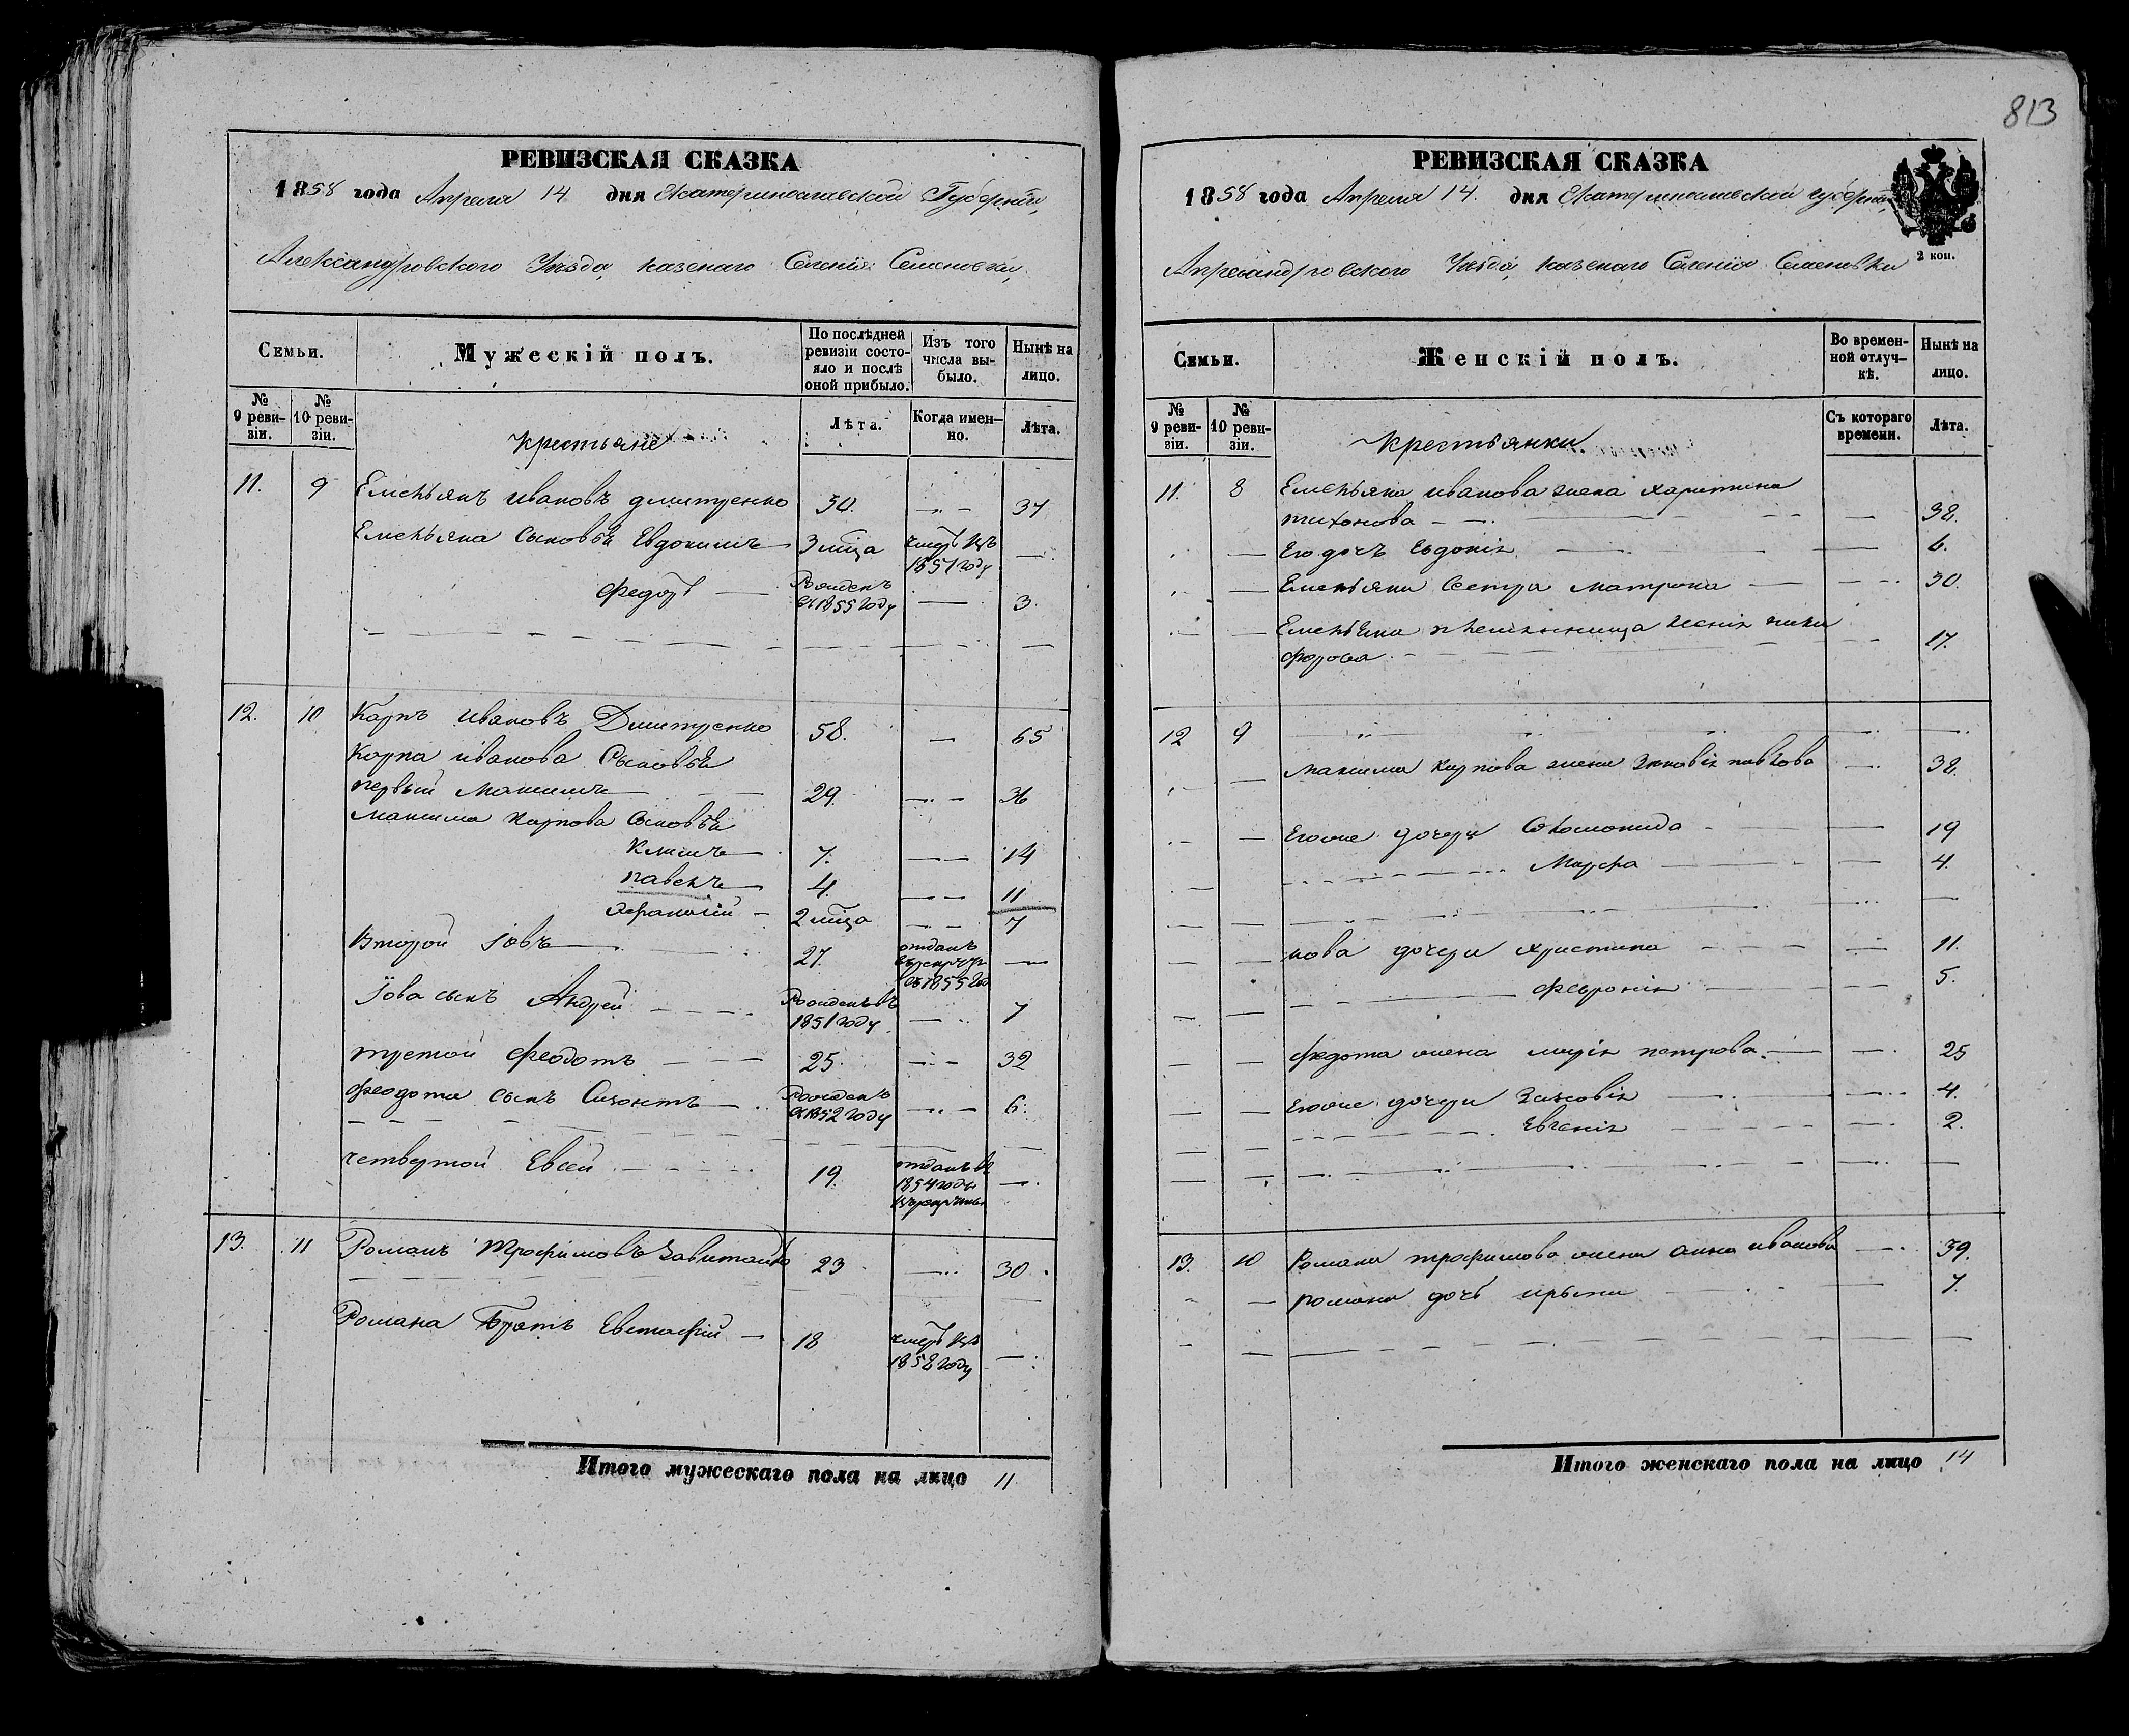 813
РЕВИЗСКАЯ СКАЗКА
1858 года Апреля 14 дня Екатеринославской Губернии,
Александровского Уезда, казенаго Селения Семеновки,
Семьи.
Мужескій полъ.
По послѣдней ревизіи состо-
яло и послѣ
оной прибыло.
Изъ того
числа вы-
было.
Нынѣ на
лицо.
№
9 реви-
зіи.
№
10 реви-
зіи.
Крестьяне
Лѣта.
Когда имен-
но.
Лѣта.
11. 9 Емельянъ Ивановъ Дмитренко 30. 37
Емельяна Сыновья Евдокимъ 3 мца умер въ
1851 году
Федотъ Рожденъ
въ 1855 году 3.
12. 10 Карпъ Ивановъ Дмитренко 58. 65
Карпа Иванова Сыновья
первый Максимъ 29. 36
Максима Карпова Сыновья
Климъ 7. 14
Павелъ 4. 11
Афанасий 2 мца 7
Второй Іовъ 27. отданъ
в рекруты
въ 1855 год
Іова сынъ Андрей Рожденъ въ
1851 году 7
третой Феодотъ 25. 32
Феодота сынъ Рожденъ
въ 1852 году 6.
четвертой Евсей 19. отданъ въ
1854 году
въ рекруты
13. 11 Романъ Трофимовъ 23 30.
Романа Братъ Евстафий 18 умеръ въ
1858 году
Итого мужескаго пола на лицо 11.
РЕВИЗСКАЯ СКАЗКА
1858 года Апреля 14. дня Екатеринославской губернии,
Уезда, казенаго Селения Семеновки
2 коп.
Семьи.
Женскій полъ.
Во времен-
ной отлуч-
кѣ.
Нынѣ на
лицо.
№
9 реви-
зіи.
№
10 реви-
зіи.
Крестьянки
Съ котораго
времени.
Лѣта.
11. 8 Емельяна Иванова жена Харитина
Тихонова 38.
Его дочъ Евдокія 6.
Емельяна Сестра Матрона 30.
Емельяна племянница Ксенія Ники
форова 17.
12 9
Максима Карпова жена Зиновія Павлова 38.
Егоже дочери Соломонида 19
Марфа 4.
Иова дочери Христина 11.
Феврония 5.
Федота жена Марія Петрова 25
Егоже дочери Зиновія 4.
Евгенія 2.
13. 10 Романа Трофимова жена Анна Иванова 39.
Романа дочь Ирына 7.
Итого женскаго пола на лицо 14